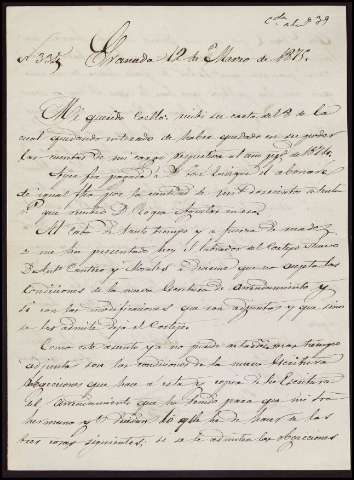 Cda al nº 39
Nº 33
Granada 12 de Marzo de 1875.
Mi querido Coello: recibí su carta del 8 de la
cual quedando enterado de haber quedado en su poder
las cuentas de mi cargo respectiva al año ppº de 1874.
Ayer fue pagada á D. José Enrique el abonaré
de igual fha por la cantidad de mil doscientos
que remitió D. Roque Aguilar
Al cabo de tanto tiempo y a fuerza de
me ha presentado hoy el labrador del Cortijo
D. Antº Cantero y Morales diciendo que no acepta las
condiciones de la nueva Escritura de arrendamiento y
si con las modificaciones que van adjuntas y que sino
se les admite deja el Cortijo.
Como este asunto ya no puede más tiempo
adjunta son las condiciones de la nueva Escritura
objecciones que hace a esta y copia de la Escritura
del arrendamiento que ha tenido para que mi Sra
hermana y decidan lo que he de hacer de las
tres cosas siguientes; si se le admiten las objecciones